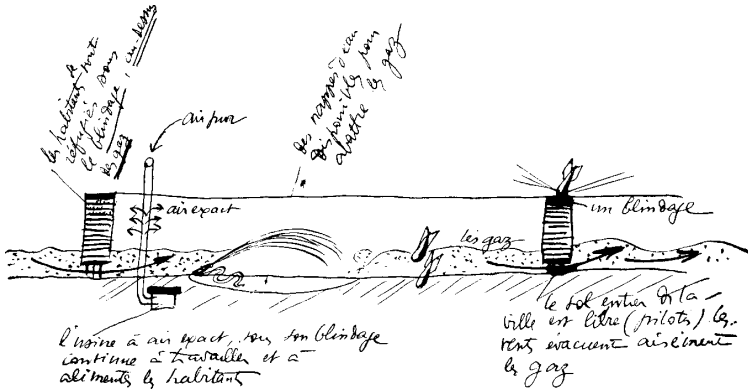 les habitants
se sont
réfugiés sous
le blindage, au-dessus
des gaz
air pur
des nappes d'eau
disponibles pour
abattre les gaz
air exact
les gaz
un blindage
l'usine à air exact, sous son blindage
continue à travailler et à
alimenter les habitants
le sol entier de la
ville est libre (pilotis) les
vents évacuent aisément
les gaz